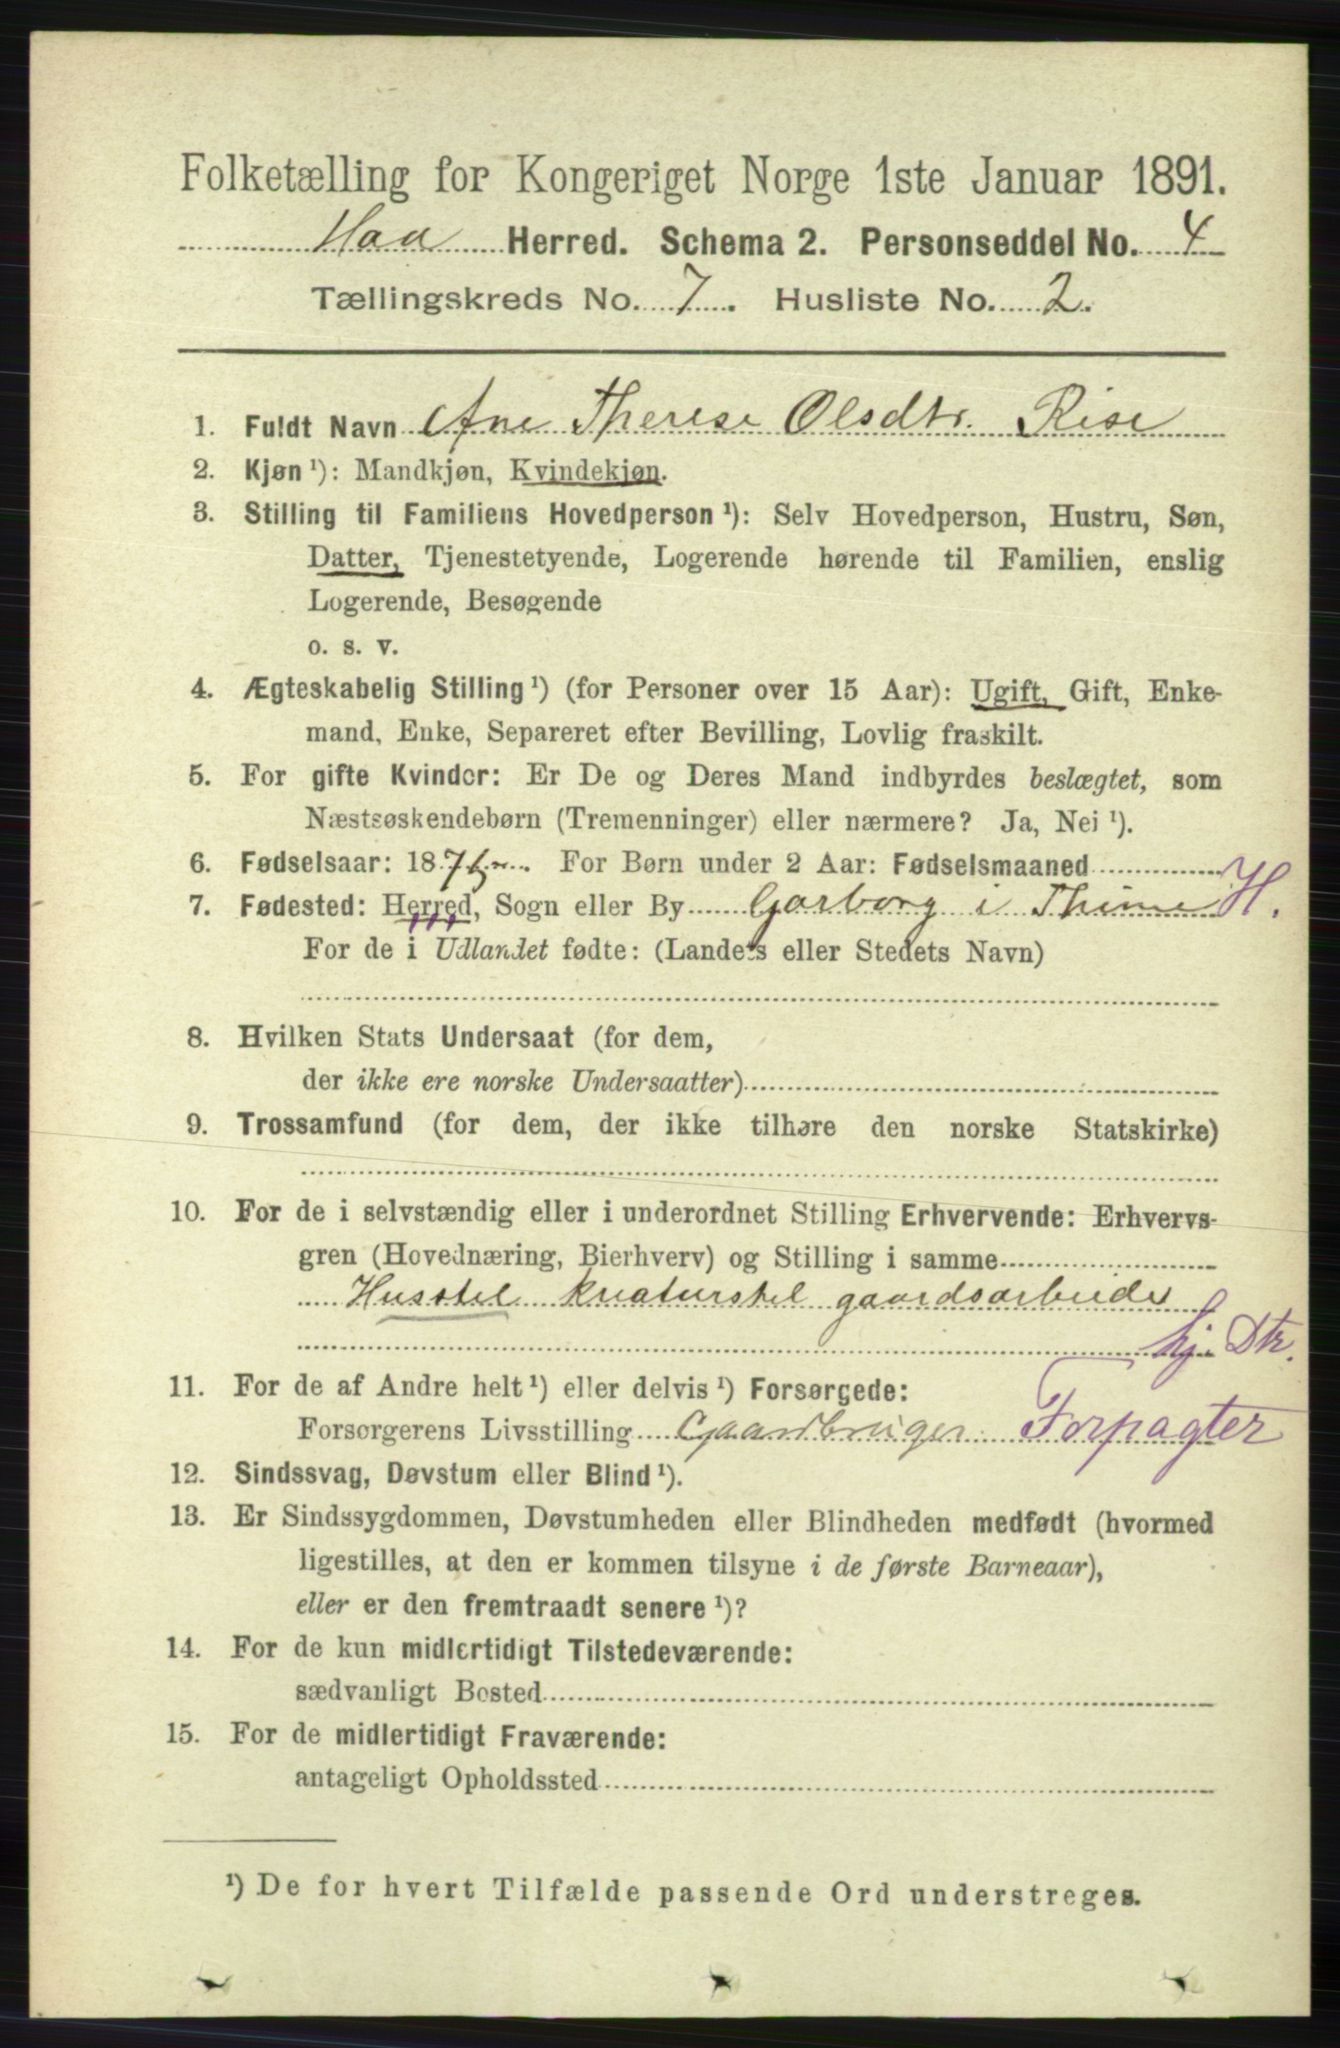 Folketælling for Kongeriget Norge 1ste Januar 1891.
Haa Herred. Schema 2. Personseddel No. 4
Tællingskreds No. 7. Husliste No. 2.
1. Fuldt Navn Ane Therese Olsdtr. Rise
2. Kjøn ¹): Mandkjøn, Kvindekjøn.
3. Stilling til Familiens Hovedperson ¹): Selv Hovedperson, Hustru, Søn,
Datter, Tjenestetyende, Logerende hørende til Familien, enslig
Logerende, Besøgende
o. s. v.
4. Ægteskabelig Stilling ¹) (for Personer over 15 Aar): Ugift, Gift, Enke-
mand, Enke, Separeret efter Bevilling, Lovlig fraskilt.
5. For gifte Kvinder: Er De og Deres Mand indbyrdes beslægtet, som
Næstsøskendebørn (Tremenninger) eller nærmere? Ja, Nei ¹).
6. Fødselsaar: 187 For Børn under 2 Aar: Fødselsmaaned
7. Fødested: Herred, Sogn eller By Garborg i Thime H.
For de i Udlandet fødte: (Landets eller Stedets Navn)
8. Hvilken Stats Undersaat (for dem,
der ikke ere norske Undersaatter)
9. Trossamfund (for dem, der ikke tilhøre den norske Statskirke)
10. For de i selvstændig eller i underordnet Stilling Erhvervende: Erhvervs-
gren (Hovednæring, Bierhverv) og Stilling i samme
Husstel kreaturstel gaardsarbeide
hj. Dtr.
11. For de af Andre helt ¹) eller delvis ¹) Forsørgede:
Forsørgerens Livsstilling Gaardbruger Forpagter
12. Sindssvag, Døvstum eller Blind ¹).
13. Er Sindssygdommen, Døvstumheden eller Blindheden medfødt (hvormed
ligestilles, at den er kommen tilsyne i de første Barneaar),
eller er den fremtraadt senere ¹)?
14. For de kun midlertidigt Tilstedeværende:
sædvanligt Bosted
15. For de midlertidigt Fraværende:
antageligt Opholdssted
¹) De for hvert Tilfælde passende Ord understreges.